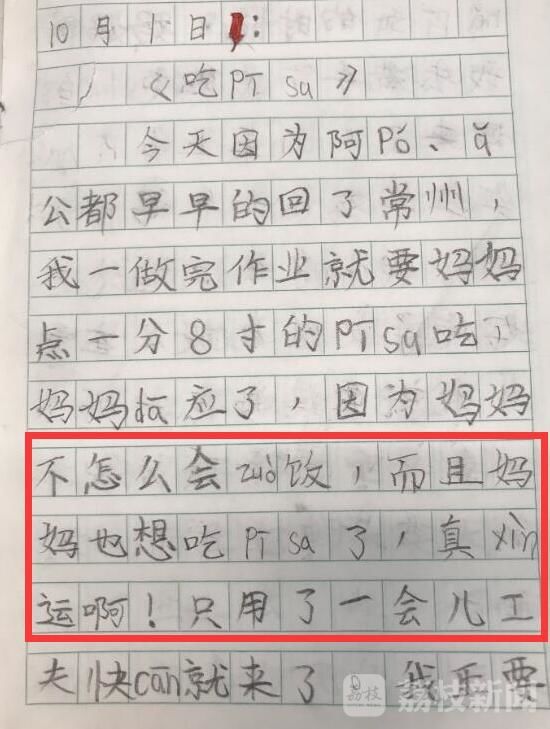 10月1日:
《吃pī sà》
今天因为阿Pó、ǎ
公都早早的回了常州,
我一做完作业就要妈妈
点一分8寸的pī sà吃,
妈妈dā应了,因为妈妈
不怎么会zuò饭,而且妈
妈也想吃pī sà了,真xìn
运啊!只用了一会儿工
夫快cān就来了 我不要
荔枝
荔枝新闻